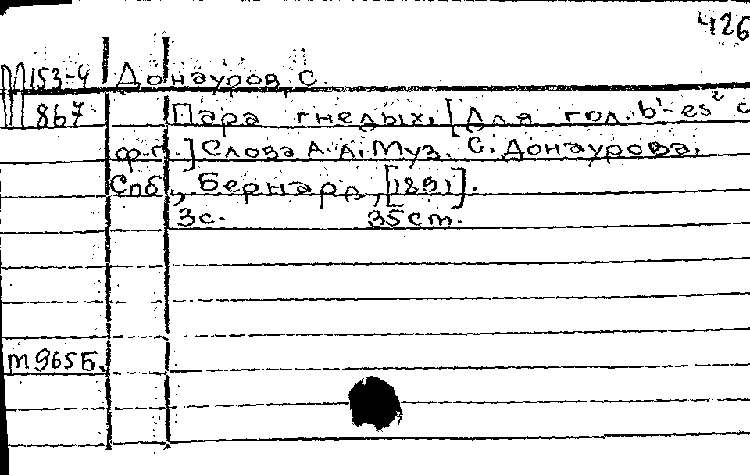 426
М153-4 Донауров, С.
867 Пара гнедых. [Для гол. b'-es² с
ф.п.] Слова А.А. Муз. С. Донаурова.
Спб, Бернард, [1891].
3с. 35ст.
М965Б.